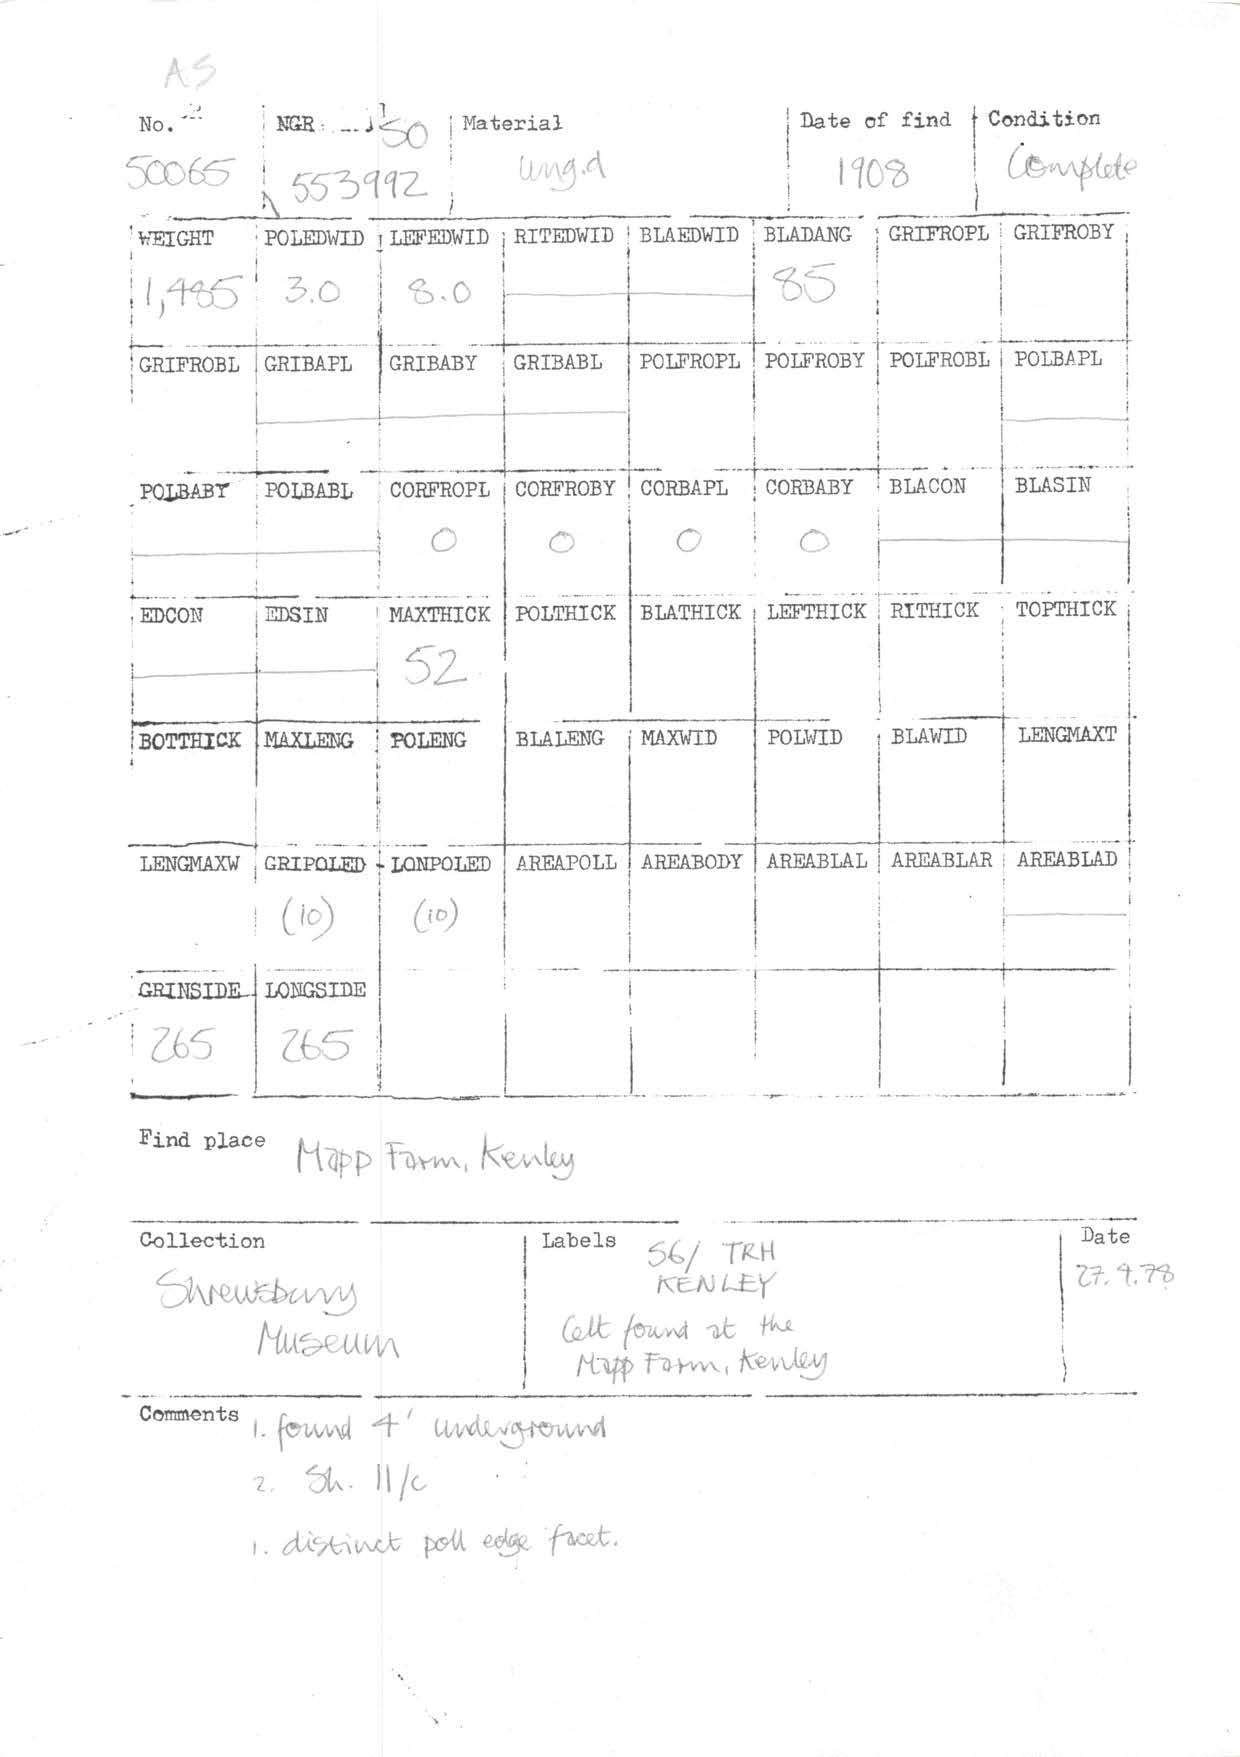 AS
No. NGR SJ 50 Material Date of find Condition
50065 553992 ung.d 1908 Complete
WEIGHT POLEDWID LEFEDWID RITEDWID BLAEDWID BLADANG GRIFROPL GRIFROBY
1,485 3.0 8.0 85
GRIFROBL GRIBAPL GRIBABY GRIBABL POLFROPL POLFROBY POLFROBL POLBAPL
POLBABY POLBABL CORFROPL CORFROBY CORBAPL CORBABY BLACON BLASIN
0 0 0 0
EDCON EDSIN MAXTHICK POLTHICK BLATHICK LEFTHICK RITHICK TOPTHICK
52
BOTTHICK MAXLENG POLENG BLALENG MAXWID POLWID BLAWID LENGMAXT
LENGMAXW GRIPOLED LONPOLED AREAPOLL AREABODY AREABLAL AREABLAR AREABLAD
(10) (10)
GRINSIDE LONGSIDE
265 265
Find place Mapp Farm, Kenley
Collection Labels Date
Shrewsbury
Museum
S6/ TRH
KENLEY
Celt found at the
Mapp Farm, Kenley
27.9.78
Comments 1. found 4' underground
2. Sh. 11/c
1. distinct poll edge facet.